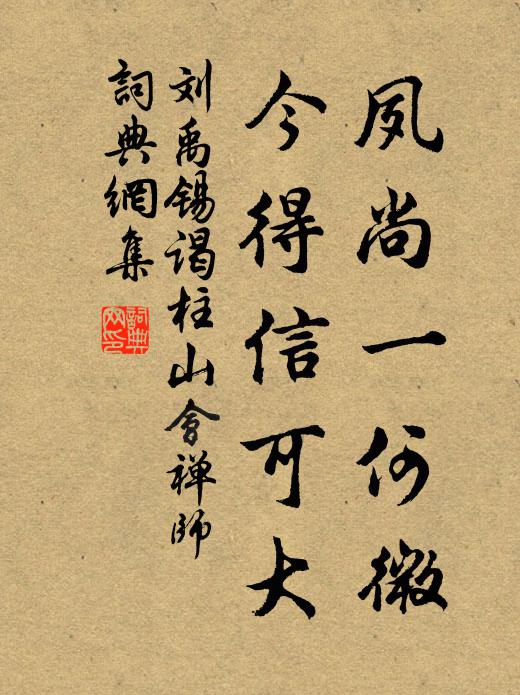 夙尚一何微
今得信可大
刘禹锡谒柱山會禅師
詞典網集
詞典网印